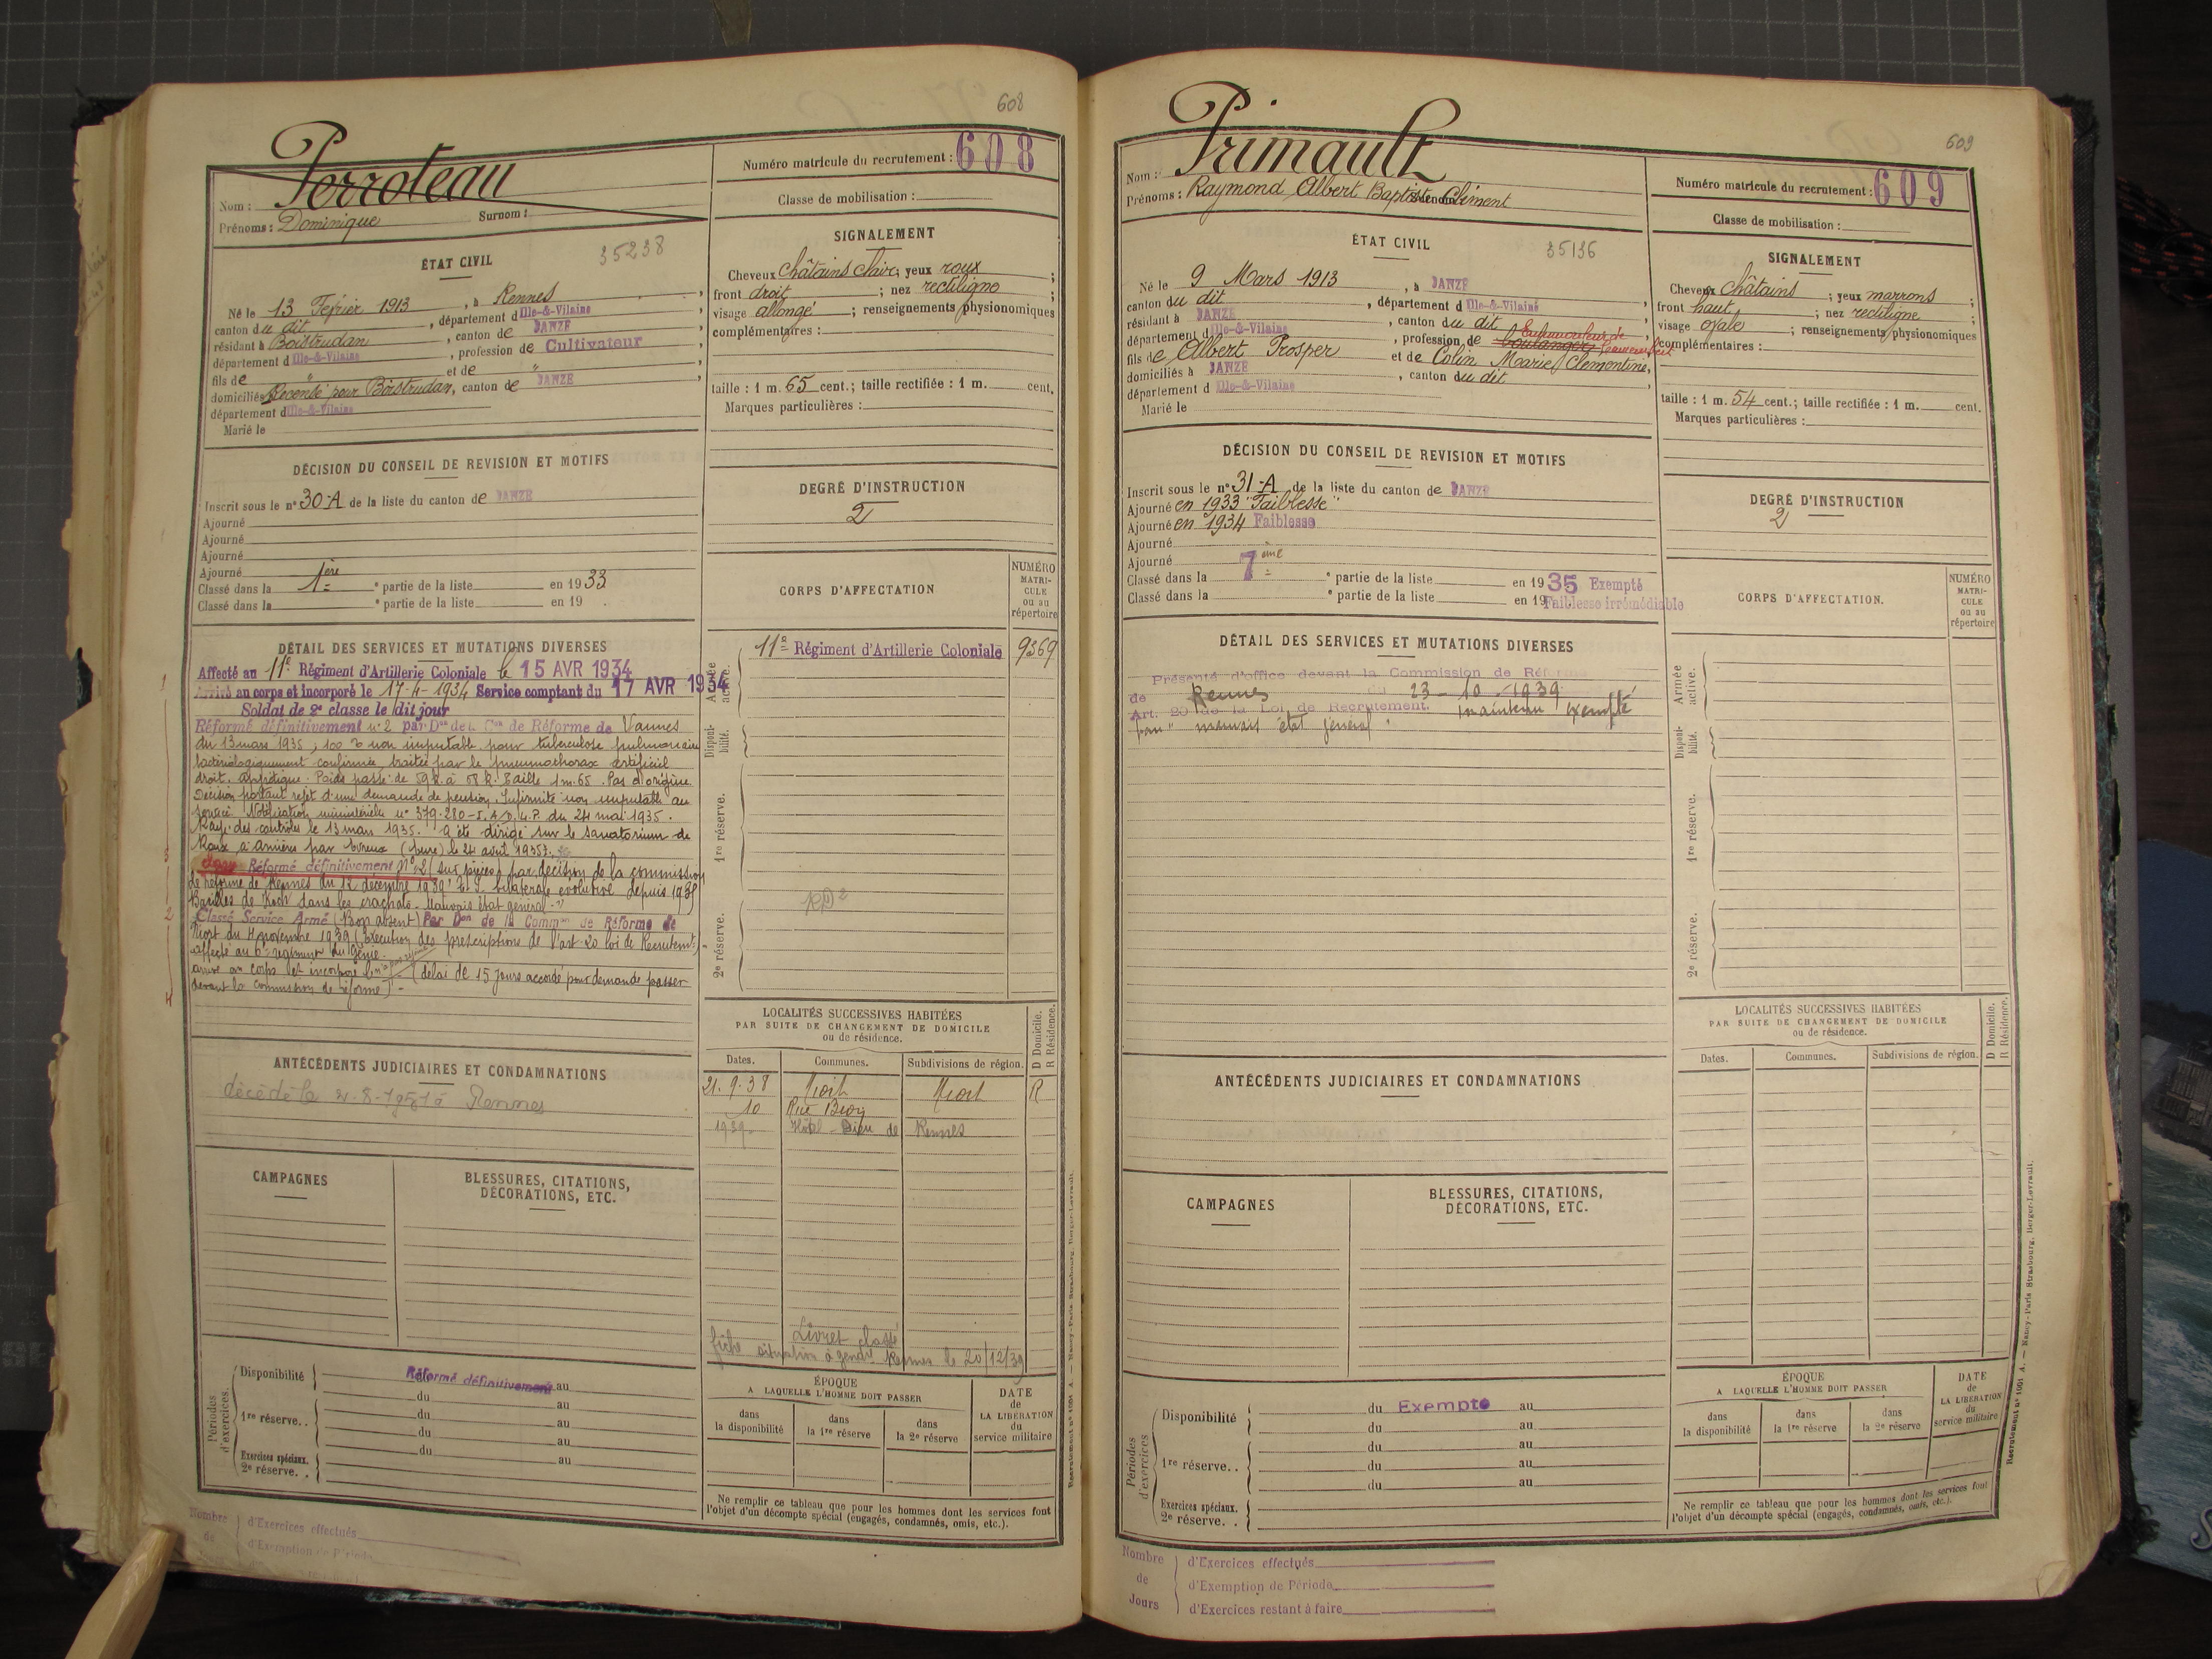 608
Perroteau
Nom :
Prénoms : Dominique Surnom :
Numéro matricule du recrutement : 608
Classe de mobilisation :
ÉTAT CIVIL
35238
Né le 13 Février 1913, à Rennes
canton du dit, département d Ille-&-Vilaine
résidant à Boistrudan, canton de JANZÉ
département d Ille-&-Vilaine, profession de Cultivateur
fils de " et de "
domiciliés Recensé pour Boistrudan, canton de JANZÉ
département d Ille-&-Vilaine
Marié le
SIGNALEMENT
Cheveux châtains clairs yeux roux ;
front droit ; nez rectiligne ;
visage allongé ; renseignements physionomiques
complémentaires :
taille : 1 m. 65 cent.; taille rectifiée : 1 m. cent.
Marques particulières :
DÉCISION DU CONSEIL DE REVISION ET MOTIFS
Inscrit sous le n° 30-A de la liste du canton de JANZÉ
Ajourné
Ajourné
Ajourné
Ajourné
Classé dans la 1ère e partie de la liste en 1933
Classé dans la e partie de la liste en 19 .
DEGRÉ D'INSTRUCTION
2
CORPS D'AFFECTATION
NUMÉRO
MATRI-
CULE
ou au
répertoire
DÉTAIL DES SERVICES ET MUTATIONS DIVERSES
Affecté au 11e Régiment d'Artillerie Coloniale le 15 AVR 1934
Arrivé au corps et incorporé le 17-4-1934 Service comptant du 17 AVR 1934
Soldat de 2e classe le dit jour
Réformé définitivement n°2 par Don de la Con de Réforme de Vannes
du 13 mars 1935, 100 % non imputable pour tuberculose pulmonaire
bactériologiquement confirmée, traitée par le pneumothorax artificiel
droit. Poids passé de 59 k. à 58 k. Taille 1m.65. Pas d'origine
Décision portant rejet d'une demande de pension. Infirmité non imputable au
service. Notification ministérielle n° 379.280 du 24 mai 1935.
Rayé des contrôles le 13 mars 1935. A été dirigé sur le sanatorium de
par Evreux (Eure) le 24 avril 1935.
Réformé définitivement N°2 (sur pièces) par décision de la commission
de réforme de Rennes du 12 décembre 1939 bilatérale évolutive depuis 1935
Bacilles de Koch dans les crachats. Mauvais état général
Classé Service Armé (Bon absent) Par Don de la Common de Réforme de
Niort du 4 novembre 1939 (Exécution des prescriptions de l'art 20 loi de Recrutemt)
affecté au 6e régiment du Génie.
arrivé au corps et incorporé le (délai de 15 jours accordé pour demande passer
devant la commission de réforme).-
1
3
2
4
Armée active.
11e Régiment d'Artillerie Coloniale 9369
Disponibilité.
1re réserve.
2e réserve.
LOCALITÉS SUCCESSIVES HABITÉES
PAR SUITE DE CHANGEMENT DE DOMICILE
ou de résidence.
D Domicile.
R Résidence.
Dates. Communes. Subdivisions de région.
21.9.38 Niort Niort R
10 Rue
1939 Hôtel-Dieu de Rennes
Livret classé
fiche situation à gendie Rennes le 20/12/39
ANTÉCÉDENTS JUDICIAIRES ET CONDAMNATIONS
décédé le 2-8-1951 à Rennes
CAMPAGNES
BLESSURES, CITATIONS,
DÉCORATIONS, ETC.
Périodes d'exercices.
Disponibilité Réformé définitivement au
du au
1re réserve.. du au
du au
du au
Exercices spéciaux.
2e réserve. .
ÉPOQUE
A LAQUELLE L'HOMME DOIT PASSER
dans
la disponibilité
dans
la 1re réserve
dans
la 2e réserve
DATE
de
LA LIBÉRATION
du
service militaire
Ne remplir ce tableau que pour les hommes dont les services font
l'objet d'un décompte spécial (engagés, condamnés, omis, etc.).
Nombre
de
d'Exercices effectués
d'Exemption de Période
609
Primault
Nom :
Prénoms : Raymond Albert Baptiste Clément
Numéro matricule du recrutement : 609
Classe de mobilisation :
ÉTAT CIVIL
35136
Né le 9 Mars 1913, à JANZÉ
canton du dit, département d Ille-&-Vilaine
résidant à JANZÉ, canton du dit
département d Ille-&-Vilaine, profession de boulanger
fils de Albert Prosper et de Colin Marie Clémentine,
domiciliés à JANZÉ, canton du dit
département d Ille-&-Vilaine
Marié le
SIGNALEMENT
Cheveux châtains ; yeux marrons ;
front haut ; nez rectiligne ;
visage ovale ; renseignements physionomiques
complémentaires :
taille : 1 m. 54 cent.; taille rectifiée : 1 m. cent.
Marques particulières :
DÉCISION DU CONSEIL DE REVISION ET MOTIFS
Inscrit sous le n° 31-A de la liste du canton de JANZÉ
Ajourné en 1933 "Faiblesse"
Ajourné en 1934 Faiblesse
Ajourné
Ajourné
Classé dans la 7ème e partie de la liste en 1935 Exempté
Classé dans la e partie de la liste en 19 Faiblesse irrémédiable
DEGRÉ D'INSTRUCTION
2
CORPS D'AFFECTATION.
NUMÉRO
MATRI-
CULE
ou au
répertoire
DÉTAIL DES SERVICES ET MUTATIONS DIVERSES
Présenté d'office devant la Commission de Réforme
de Rennes du 23-10-1939
Art. 20 de la Loi de Recrutement. maintenu exempté
pour "mauvais état général".
Armée active.
Disponibilité.
1re réserve.
2e réserve.
LOCALITÉS SUCCESSIVES HABITÉES
PAR SUITE DE CHANGEMENT DE DOMICILE
ou de résidence.
D Domicile.
R Résidence.
Dates. Communes. Subdivisions de région.
ANTÉCÉDENTS JUDICIAIRES ET CONDAMNATIONS
CAMPAGNES
BLESSURES, CITATIONS,
DÉCORATIONS, ETC.
Périodes d'exercices
Disponibilité du Exempté au
du au
1re réserve.. du au
du au
du au
Exercices spéciaux.
2e réserve. .
ÉPOQUE
A LAQUELLE L'HOMME DOIT PASSER
dans
la disponibilité
dans
la 1re réserve
dans
la 2e réserve
DATE
de
LA LIBÉRATION
du
service militaire
Ne remplir ce tableau que pour les hommes dont les services font
l'objet d'un décompte spécial (engagés, condamnés, omis, etc.).
Recrutement n° 1001 A. — Nancy-Paris Strasbourg, Berger-Levrault.
Nombre
de
Jours
d'Exercices effectués
d'Exemption de Période
d'Exercices restant à faire